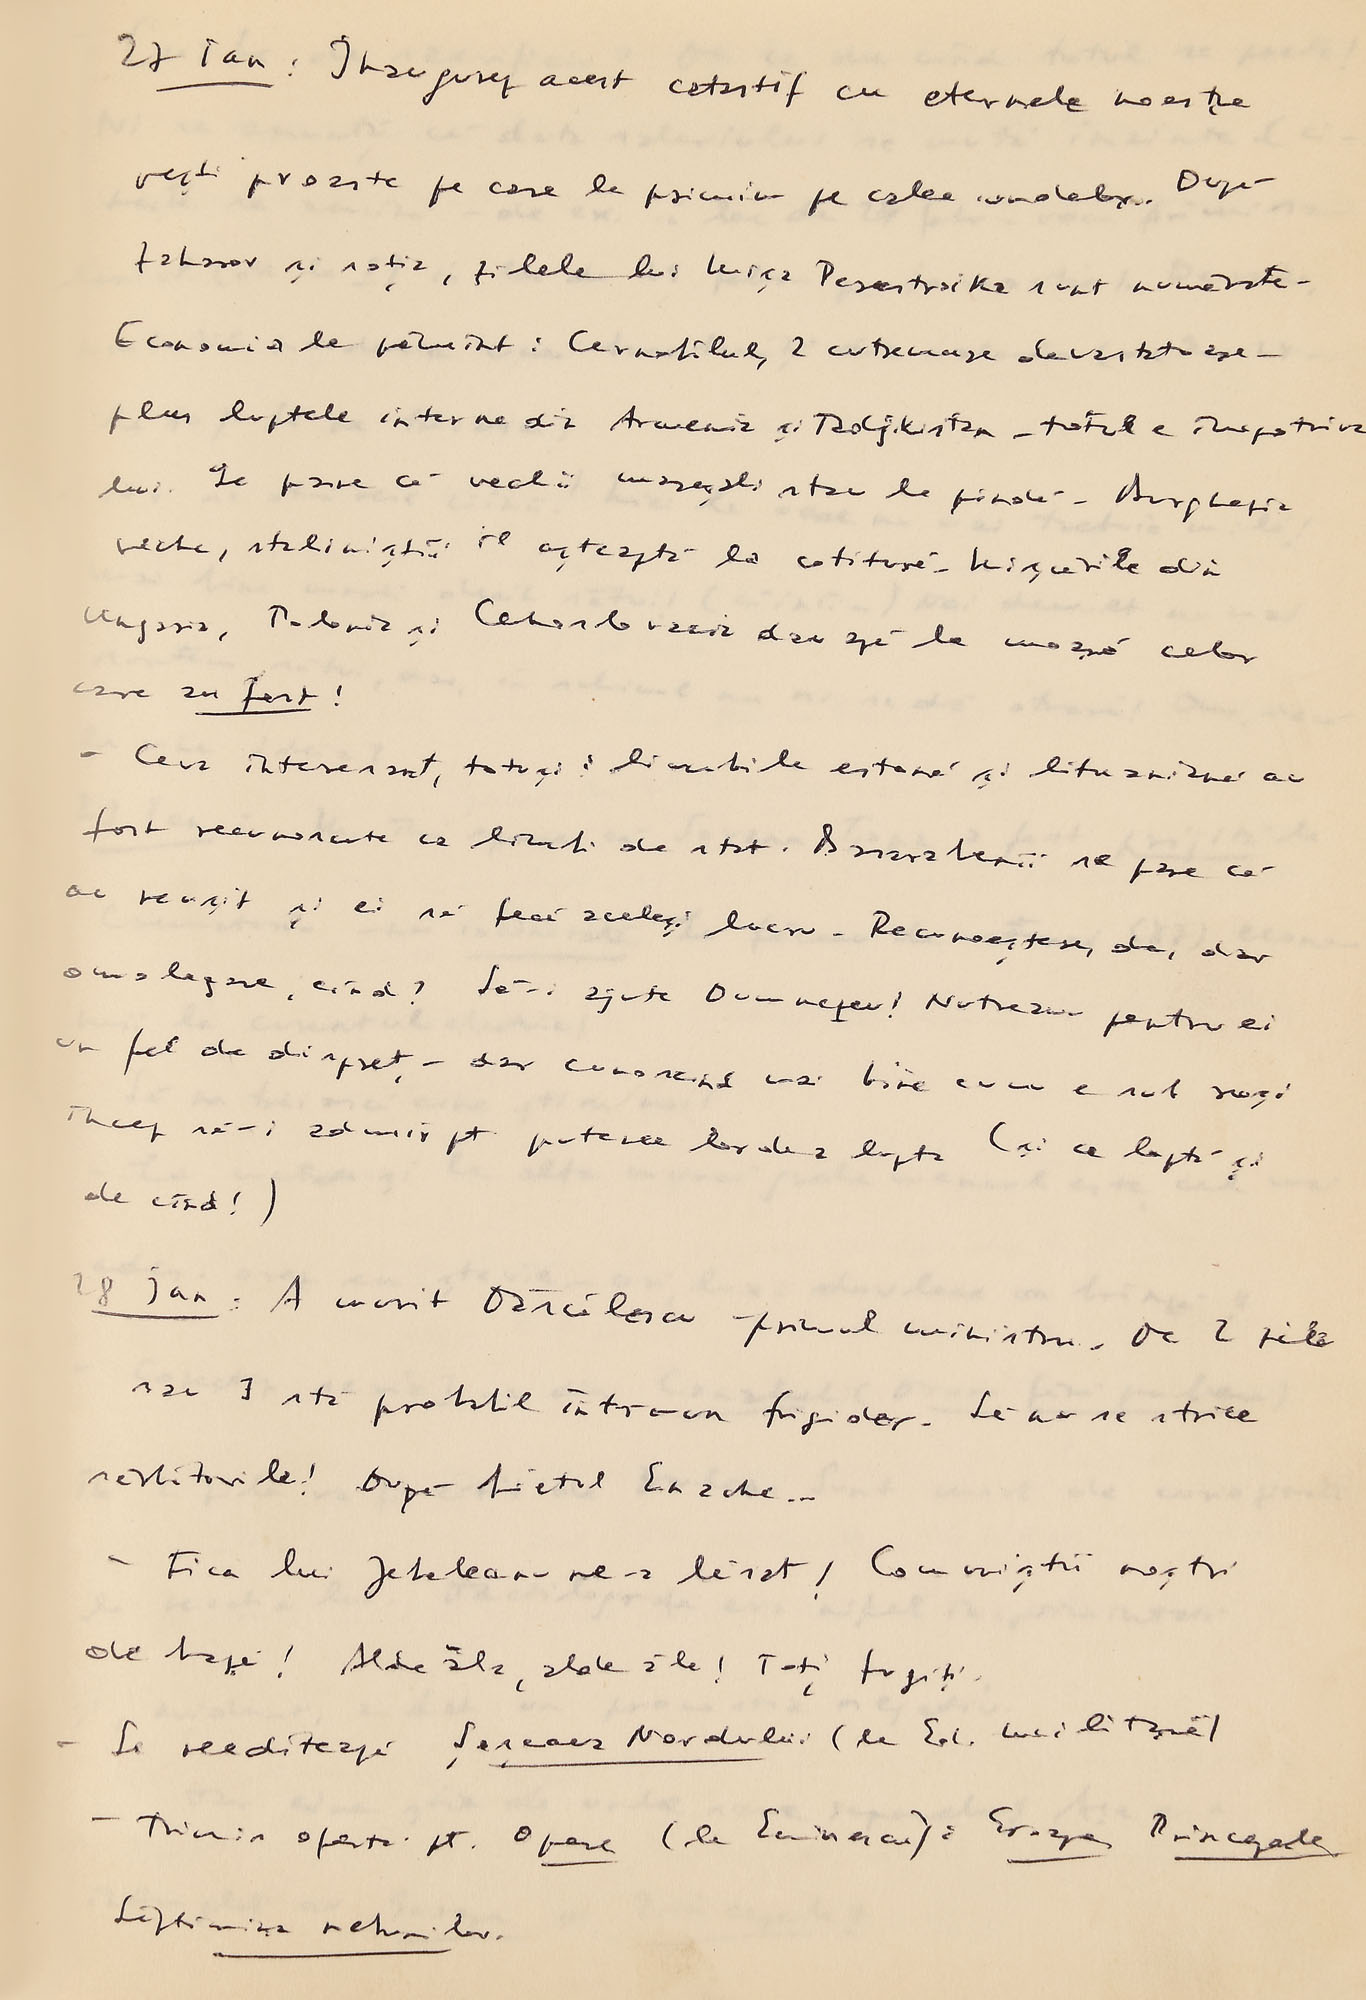 27 Ian: Inaugurez acest catastif cu eternele noastre
vești proaste pe care le primim pe calea undelor. După
Zaharov și soția, zilele lui Mișa Perestroika sunt numărate.
Economia la pămînt: Cernobîlul, 2 cutremure devastatoare –
plus luptele interne din Armenia și Tadjikistan – totul e împotriva
lui. Se pare că vechii mareșali stau la pîndă. Burghezia
veche, staliniștii îl așteaptă la cotitură. Mișcările din
Ungaria, Polonia și Cehoslovacia dau apă la moară celor
care au fost!
– Ceva interesant, totuși: limbile estonă și lituaniană au
fost recunoscute ca limbi de stat. Basarabenii se pare că
au reușit și ei să facă același lucru. Recunoaștere, da, dar
omologare, cînd? Să-i ajute Dumnezeu! Nutream pentru ei
un fel de dispreț – dar cunoscînd mai bine cum e sub roși
încep să-i admir pt puterea lor de a lupta (și ce luptă și
de cînd!)
28 Jan: A murit Dăscălescu – primul ministru. De 2 zile
sau 3 stă probabil într-un frigider. Să nu se strice
sărbătorile! După bietul Enache...
– Fica lui Jebeleanu ne-a lăsat! Comuniștii noștri
de bază! Alde ăla, alde ăla! Toți fugiți.
– Se reeditează Șarpele Nordului (la Ed. Militară)
– Trimis oferta pt. Opere (la Eminescu): Principele
Săptămîna nebunilor.